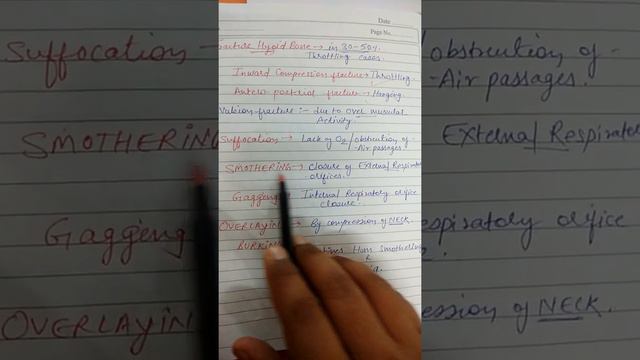 Date
Page No.
Fracture Hyoid Bone → in 30-50%
Throttling cases.
Inward Compression fracture → Throttling.
Antero posterial fracture → Hanging.
fracture :- due to over musculal
Activity.
Suffocation → Lack of O2/obstruction of
Air passages.
SMOTHERING → closure of External Respirato
orifices.
Gagging Internal Respiratory orifice
closure.
OVERLAYIN → By compression of NECK.
BURKIN Hom Smothering
&
Suffocation
SMOTHERING
Gaggeng
OVERLAYIN
/obstruction of
Air passages.
External Respirato
espiratory orifice
ession of NECK.